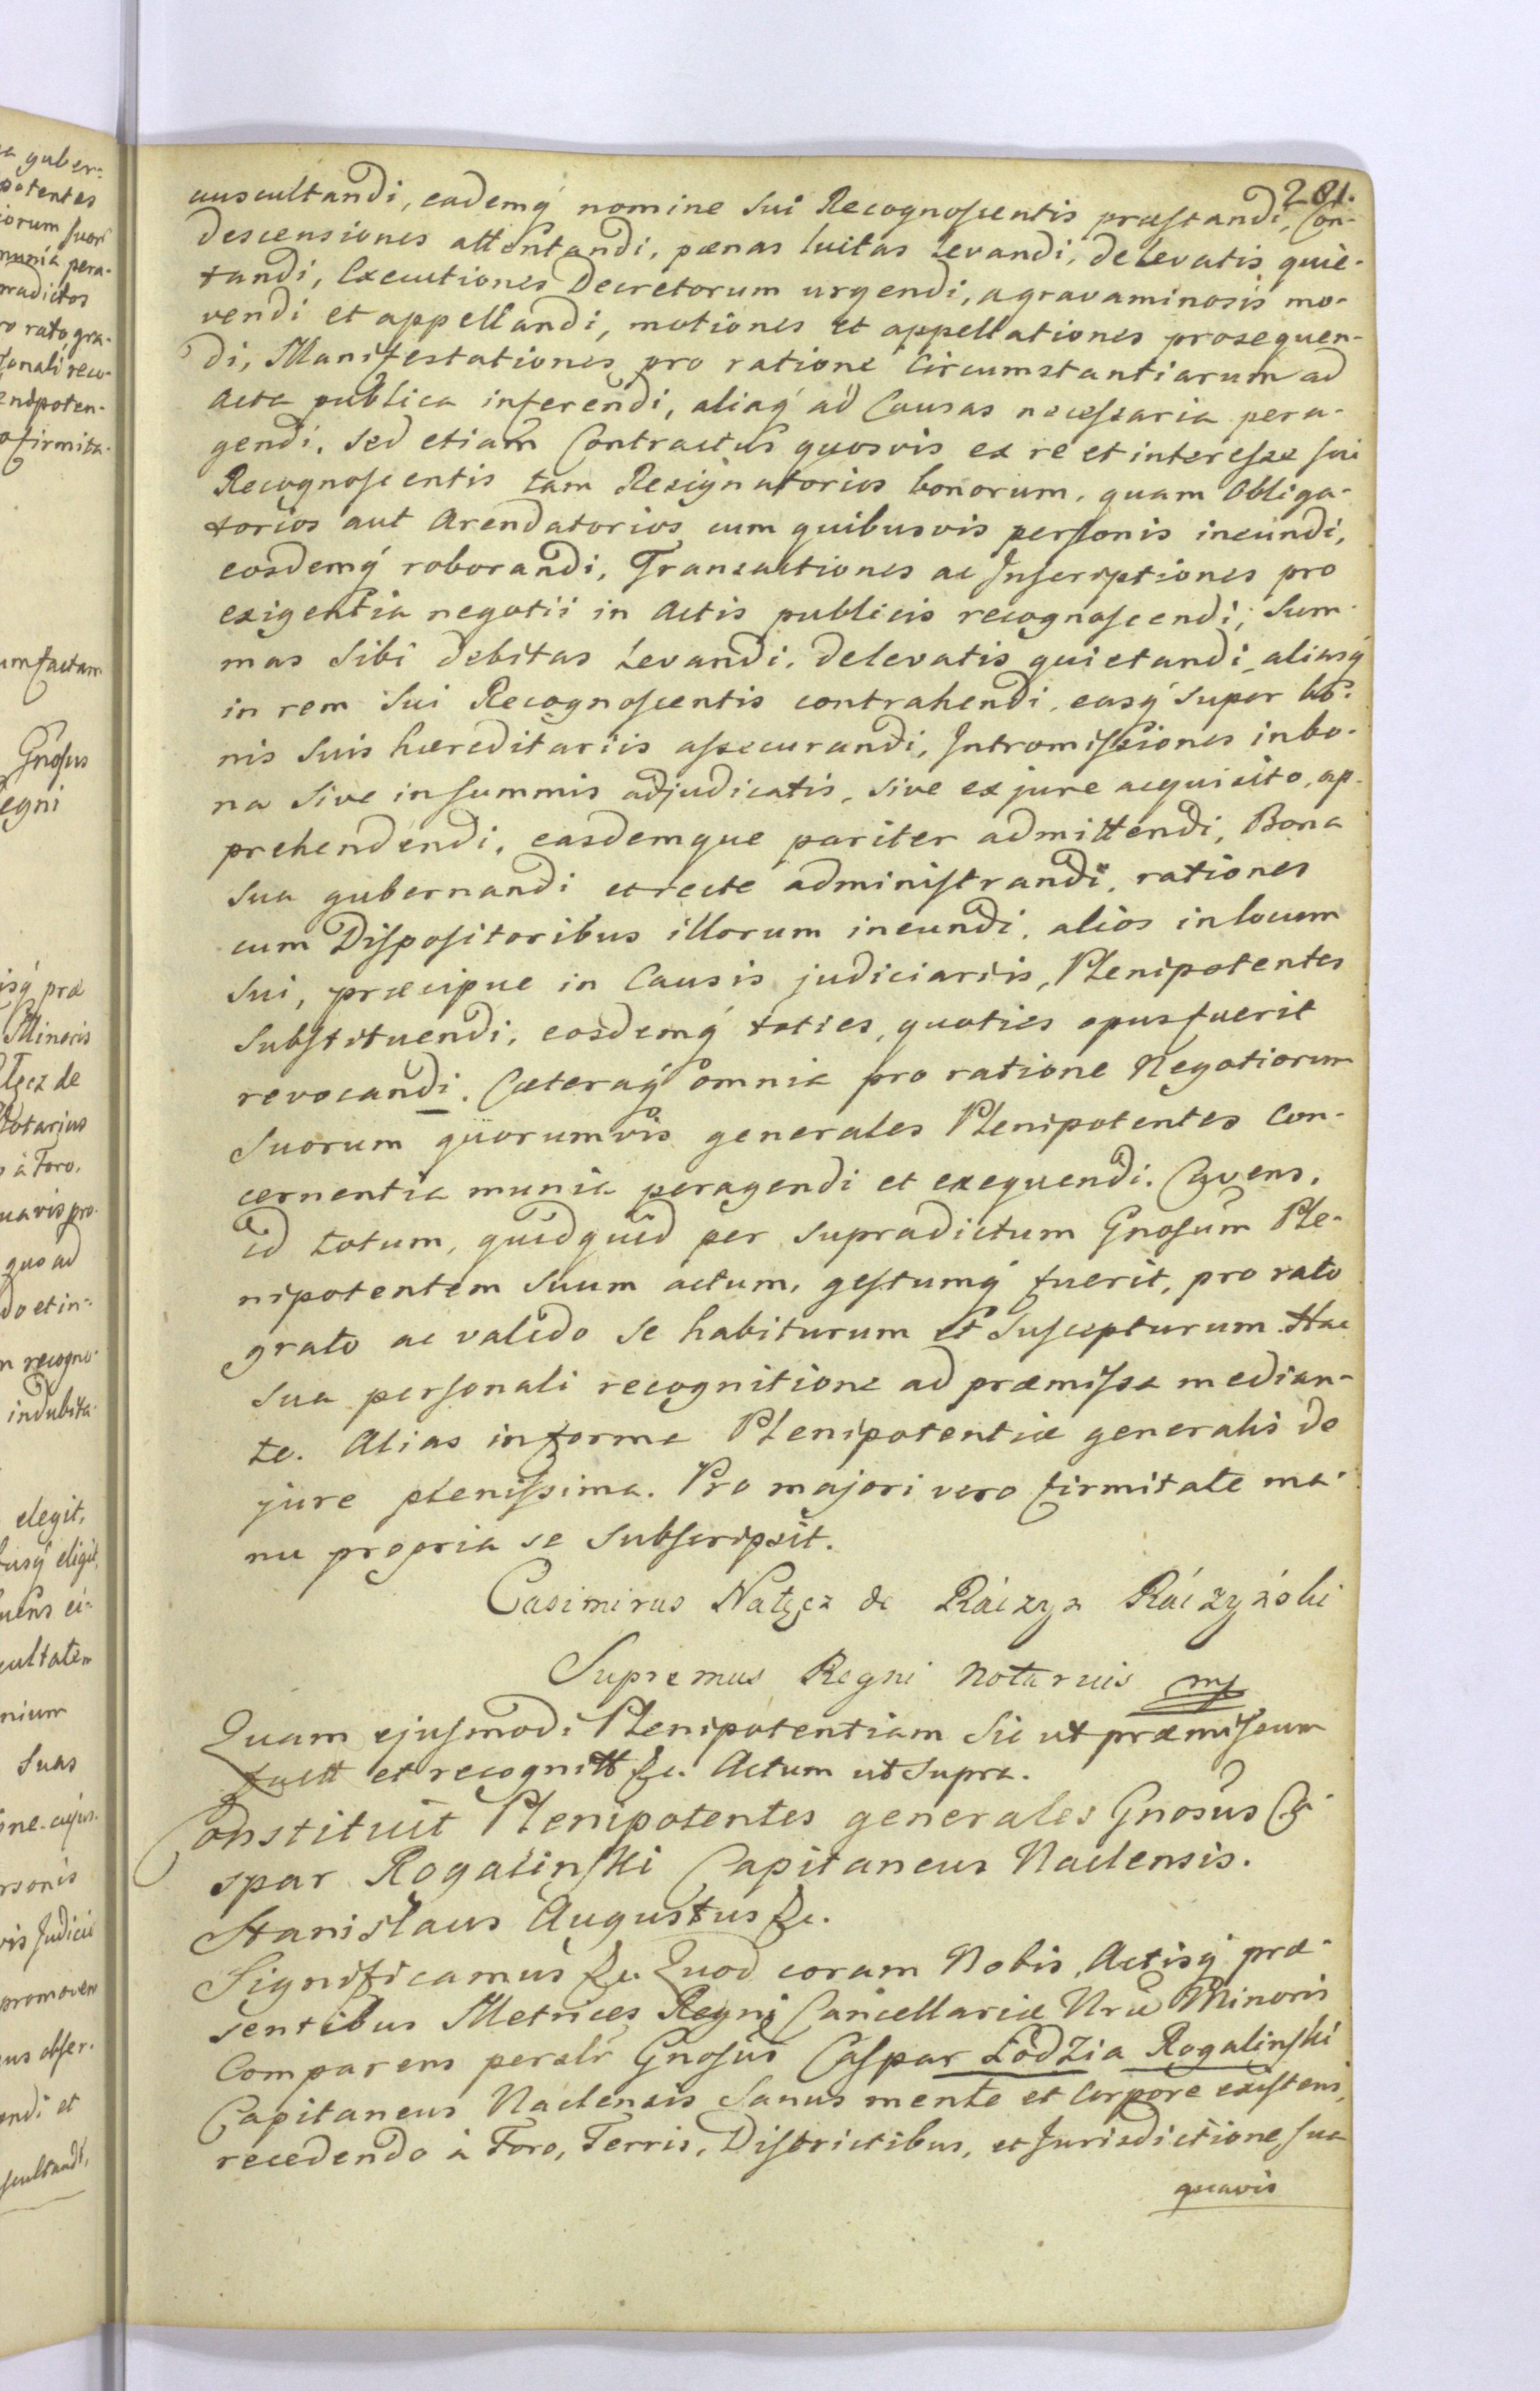 281.
auscultandi, eademq́ nomine sui Recognoscentis præstandi, Con-
descensiones attentandi, pœnas luitas levandi, de levatis quie-
tandi, Executiones Decretorum urgendi, a gravaminosis mo-
vendi et appellandi, motiones et appellationes prosequen-
di, Manifestationes pro ratione Circumstantiarum ad
Acta publica inferendi, aliaq́ ad Causas necessaria pera-
gendi, sed etiam Contractus quosvis ex re et interesse sui
Recognoscentis tam Resignatorios bonorum, quam obliga-
torios aut Arendatorios cum quibusvis personis ineundi,
eosdemq́ roborandi, Transactiones ac Inscriptiones pro
exigentia negotii in Actis publicis recognoscendi, Sum-
mas sibi debitas levandi, de levatis quietandi, aliasq́
in rem sui Recognoscentis contrahendi, easq́ super bo-
nis suis hæreditariis assecurandi, Intromissiones in bo-
na sive in summis adjudicatis, sive ex jure acquisito, ap-
prehendendi, easdemque pariter admittendi, Bona
sua gubernandi et recte administrandi, rationes
cum Dispositoribus illorum ineundi, alios in locum
sui, præcipue in Causis judiciariis, Plenipotentes
substituendi, eosdemq́ toties, quoties opus fuerit
revocandi. Cæteraq́ omnia pro ratione Negotiorum
suorum quorumvis generales Plenipotentes con-
cernentia munia peragendi et exequendi. Cavens,
id totum, quidquid per supradictum Gnosum Ple-
nipotentem suum actum, gestumq́ fuerit, pro rato
grato ac valido se habiturum et suscepturum. Hac
sua personali recognitione ad præmissa median-
te. Alias in forma Plenipotentiæ generalis de
jure plenissima. Pro majori vero firmitate ma-
nu propria se subscripsit.
Casimirus Nałęcz de Ráczyn Ráczyński
Supremus Regni Notarius mp
Quam ejusmodi Plenipotentiam sic ut præmissum
fuett et recognitt &c. Actum ut supra.
Constituit Plenipotentes generales Gnosus Ca-
spar Rogalinski Capitaneus Naclensis.
Stanislaus Augustus &c.
Significamus &c. Quod coram Nobis, Actisq́ præ-
sentibus Metrices Regni Cancellariæ Nræ Minoris
Comparens persolr Gnosus Caspar Łodzia Rogalinski
Capitaneus Naclensis sanus mente et Corpore existens,
recedendo à Foro, Terris, Districtibus, et Jurisdictione sua
quavis